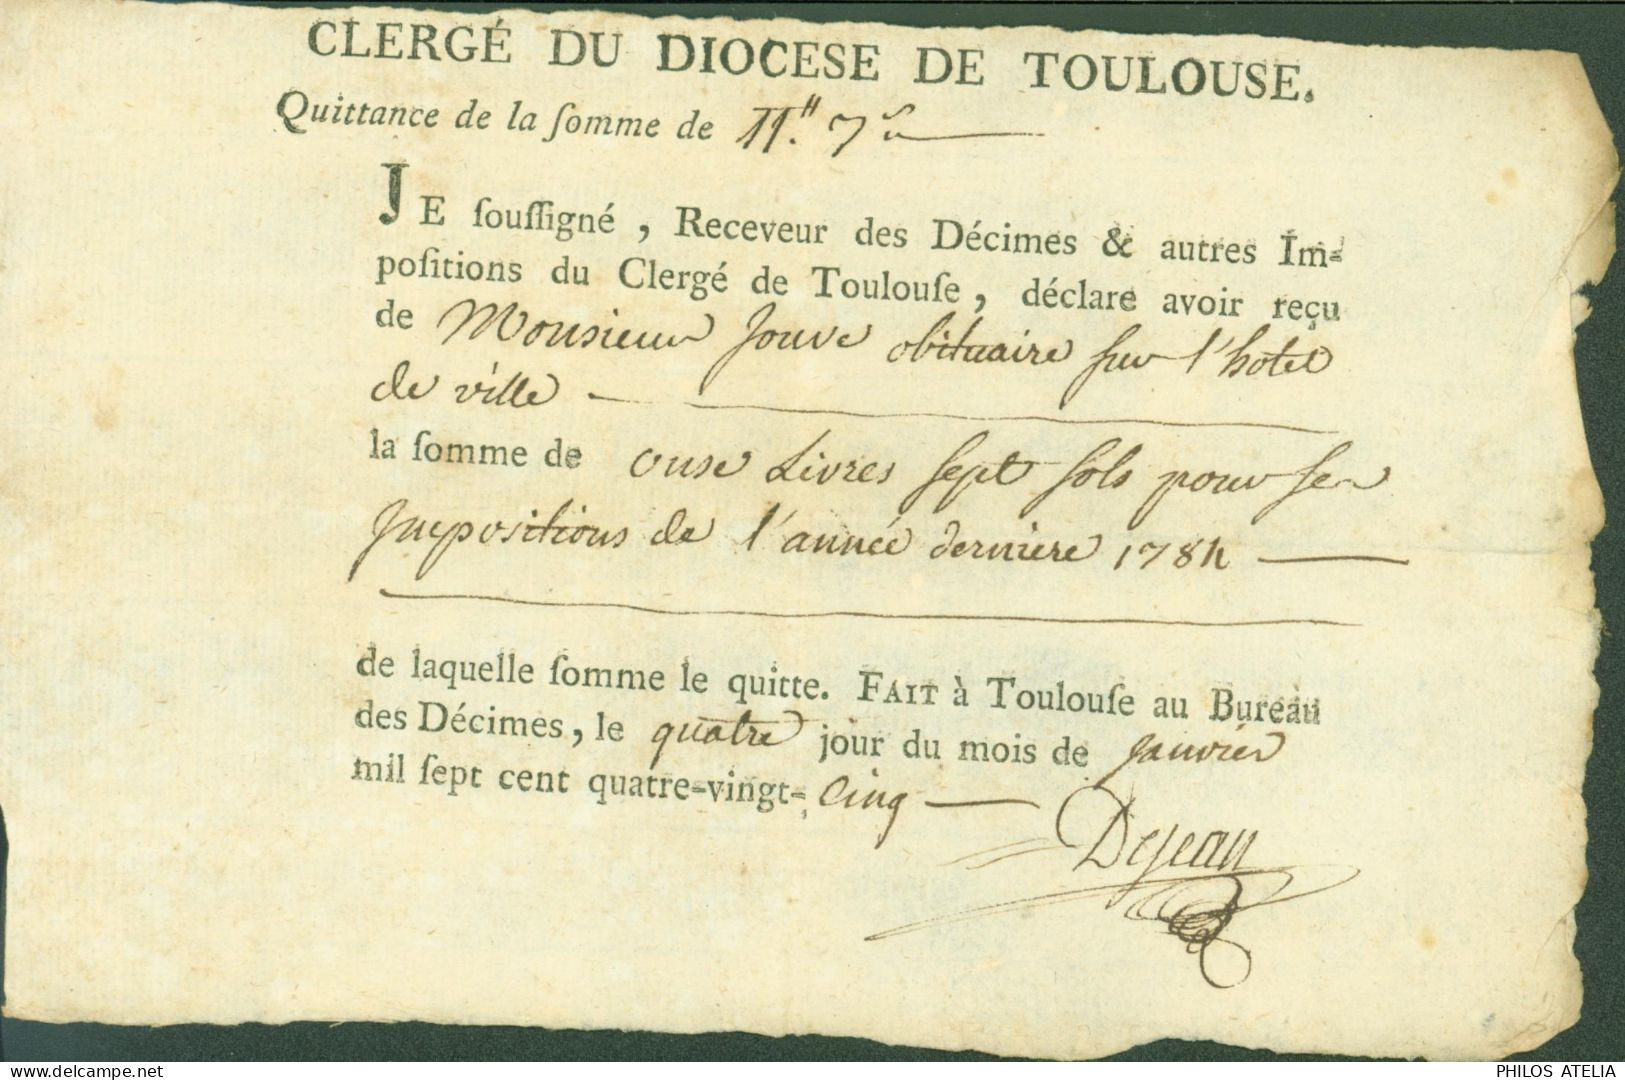 CLERGÉ DU DIOCESE DE TOULOUSE.
Quittance de la ſomme de 11.tt 7s
JE ſouſſigné, Receveur des Décimes & autres Im-
poſitions du Clergé de Toulouſe, déclare avoir reçu
de Monsieur Jouve obituaire sur l'hotel
de ville
la ſomme de onse Livres sept sols pour ses
Impositions de l'année derniere 1784
de laquelle ſomme le quitte. FAIT à Toulouſe au Bureau
des Décimes, le quatre jour du mois de Janvier
mil ſept cent quatre-vingt-cinq
Dejean
PHILOS ATELIA